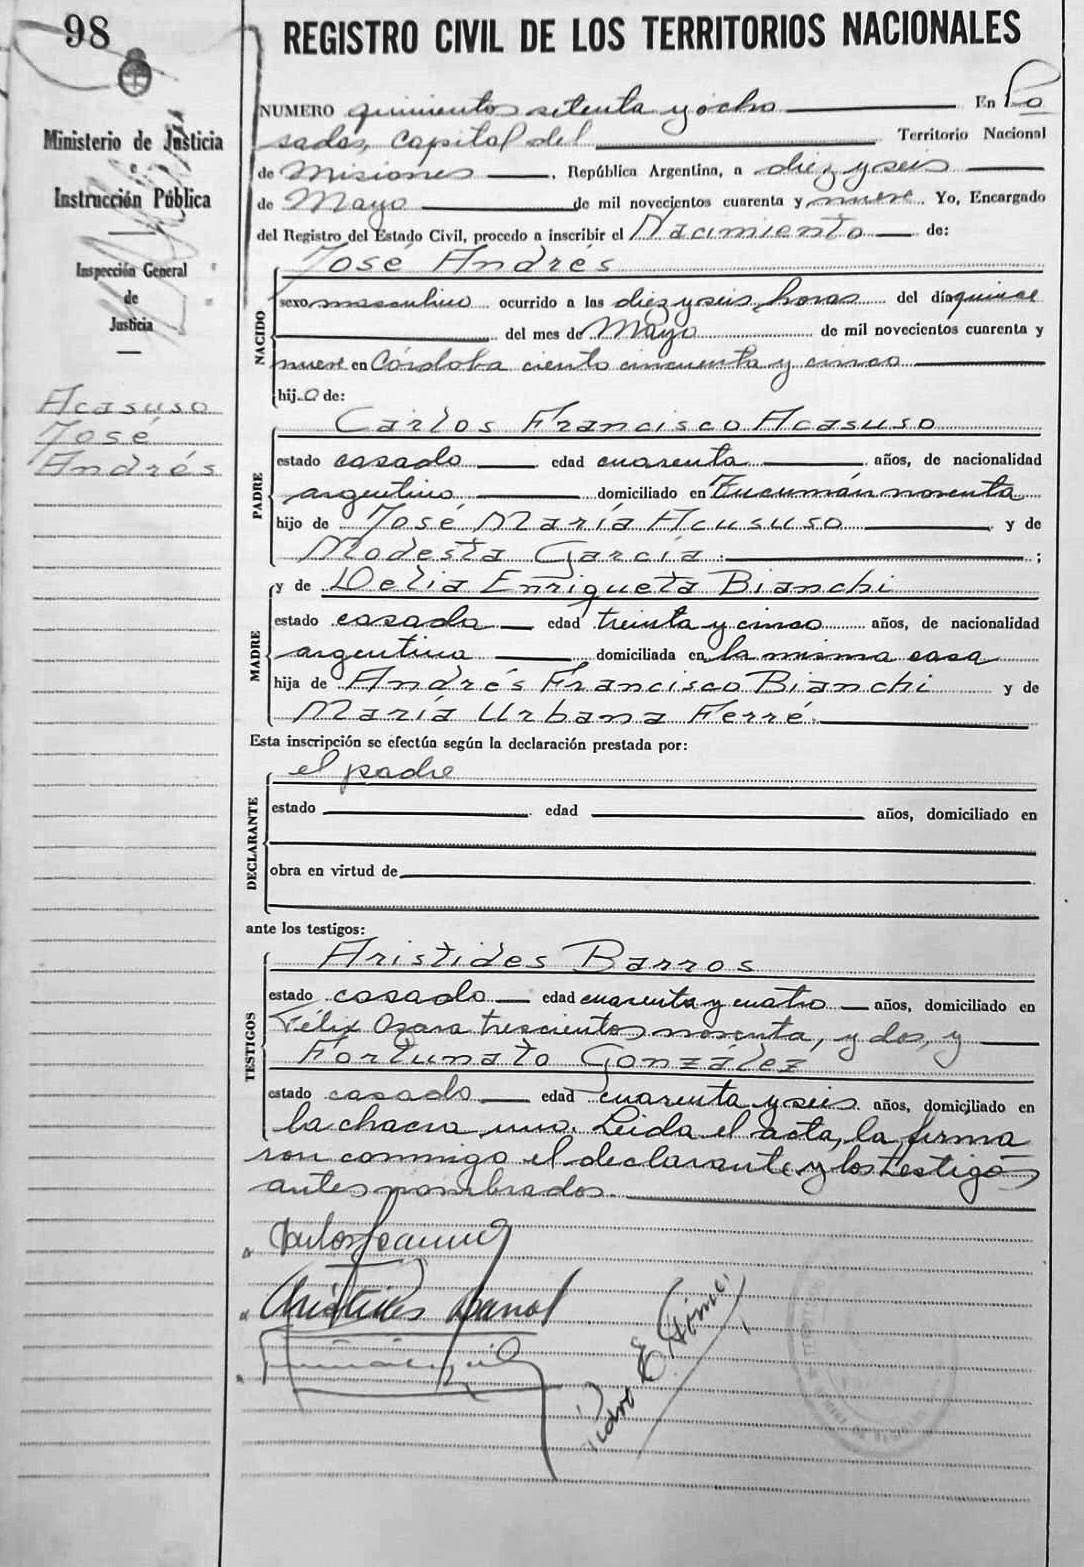 98
REGISTRO CIVIL DE LOS TERRITORIOS NACIONALES
Ministerio de Justicia
e
Instrucción Pública
Inspección General
de
Justicia
Acasuso
José
Andrés
NUMERO quinientos setenta y ocho En Po
sadas, capital del Territorio Nacional
de Misiones, República Argentina, a diez y seis
de Mayo de mil novecientos cuarenta y nueve. Yo, Encargado
del Registro del Estado Civil, procedo a inscribir el Nacimiento de:
NACIDO
José Andrés
sexo masculino ocurrido a las diez y seis horas del día quince
del mes de Mayo de mil novecientos cuarenta y
nueve en Córdoba ciento cincuenta y cinco
hijo de:
PADRE
Carlos Francisco Acasuso
estado casado edad cuarenta años, de nacionalidad
argentino domiciliado en Tucumán noventa
hijo de José María Acususo y de
Modesta García ;
MADRE
y de Delia Enriqueta Bianchi
estado casada edad treinta y cinco años, de nacionalidad
argentina domiciliada en la misma casa
hija de Andrés Francisco Bianchi y de
María Urbana Ferré.
Esta inscripción se efectúa según la declaración prestada por:
DECLARANTE
el padre
estado edad años, domiciliado en
obra en virtud de
ante los testigos:
TESTIGOS
Aristides Barros
estado casado edad cuarenta y cuatro años, domiciliado en
Félix Azara trescientos noventa, y dos, y
Fortunato González
estado casado edad cuarenta y seis años, domiciliado en
la chacra uno. Leida el acta, la firma
ron conmigo el declarante y los testigos
antes nombrados.
Aristides Barros
Pedro E.